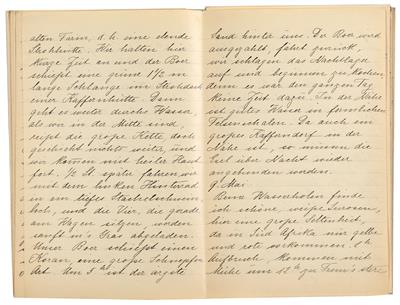 alten Farm, d. h. eine elende
Strohhütte. Wir halten hier
kurze Zeit an und der Boer
schießt eine grüne 1½ m
lange Schlange im Strohdach
einer Kaffernhütte. Dann
geht es weiter durch Wasser,
als wir in der Mitte sind,
reißt die große Kette, doch
geschieht nichts weiter, und
wir kommen mit heiler Haut
fort. ½ St. später fahren wir
mit dem linken Hinterrad
in ein tiefes Stachelschwein-
loch, und die Vier, die gerade
am Wagen sitzen, werden
sanft in's Gras abgeladen.
Unser Boer schießt einen
Koran, eine große Schnepfen
Art. Um 5 ist die ärgste
Sand hinter uns. Der Boer wird
ausgezahlt, fährt zurück,
wir schlagen das Nachtlager
auf und beginnen zu kochen,
denn es war den ganzen Tag
keine Zeit dazu. In der Nähe
ist gutes Wasser in
Felsenschalen. Da auch ein
großes Kafferndorf in der
Nähe ist, so müssen die
Esel über Nacht wieder
angebunden werden.
9. Mai.
Beim Wasserholen finde
ich schöne, weiße
hier eine große Seltenheit,
da in Süd Afrika nur gelbe
und rote vorkommen. 8 h
Aufbruch, kommen mit
Mühe um 12 h zu